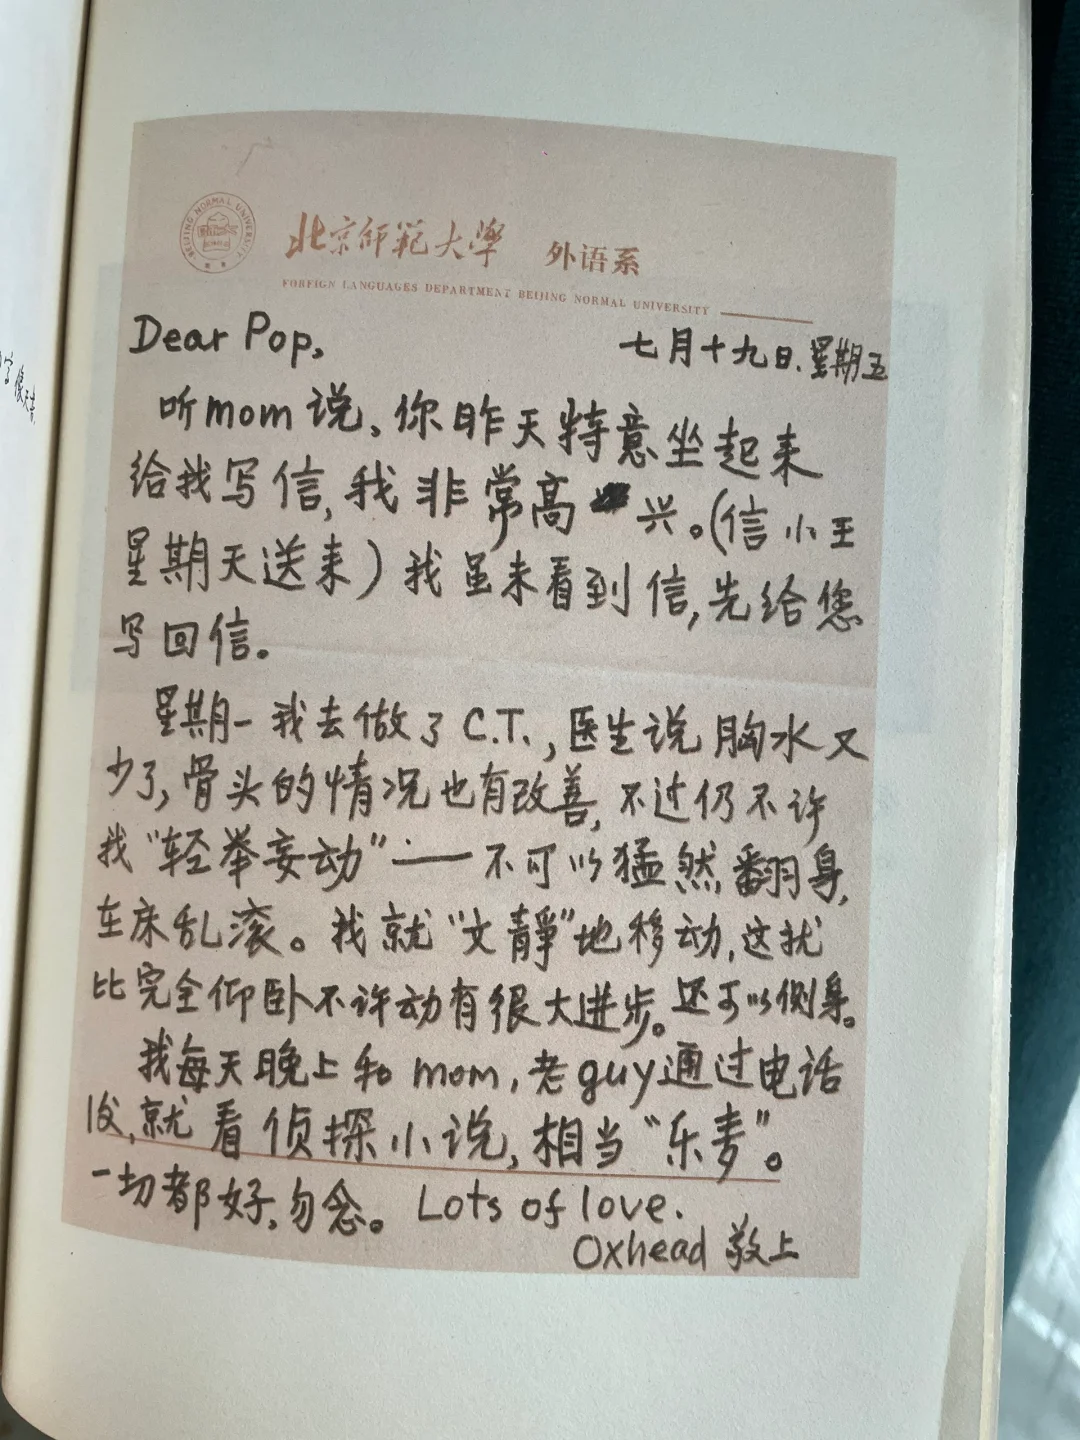 BEIJING NORMAL UNIVERSITY
北京师范大学 外语系
FOREIGN LANGUAGES DEPARTMENT BEIJING NORMAL UNIVERSITY
Dear Pop,
七月十九日.星期五
听mom说,你昨天特意坐起来
给我写信,我非常高兴。(信小王
星期天送来)我虽未看到信,先给您
写回信。
星期一我去做了C.T.,医生说胸水又
少了,骨头的情况也有改善,不过仍不许
我“轻举妄动”——不可以猛然翻身,
在床乱滚。我就“文静”地移动,这就
比完全仰卧不许动有很大进步。还可以侧身。
我每天晚上和mom,老guy通过电话
后,就看侦探小说,相当“乐麦”。
一切都好,勿念。Lots of love.
Oxhead 敬上